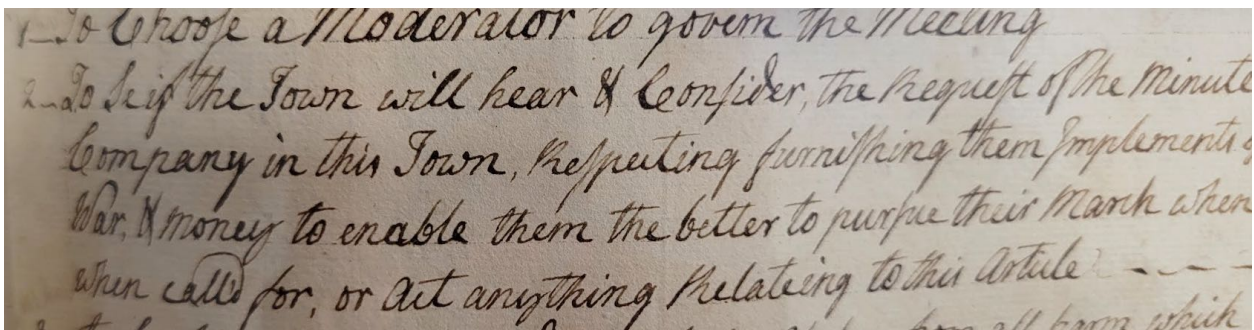 1 To Choose a Moderator to govern the Meeting
2 To Se if the Town will hear & Consider, the Request of the Minute
Company in this Town, Respecting furnishing them Implements of
War, & money to enable them the better to pursue their March when
when calld for, or Act anything Relateing to this Article
all harm which